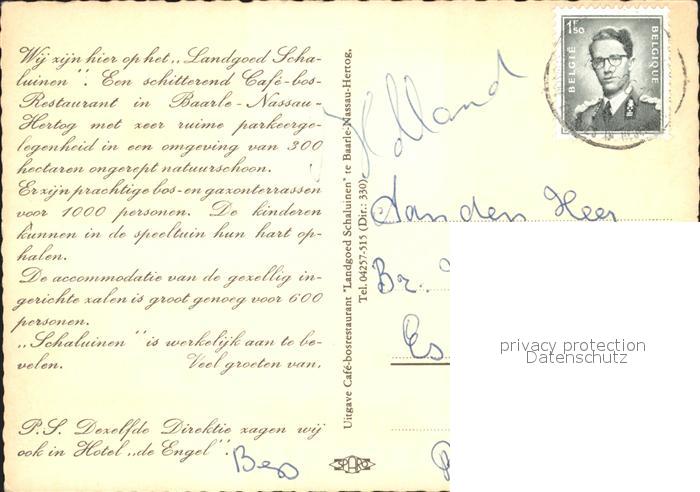 Wij zijn hier op het „Landgoed Scha-
luinen". Een schitterend Café-bos-
Restaurant in Baarle-Nassau-
Hertog met zeer ruime parkeerge-
legenheid in een omgeving van 300
hectaren ongerept natuurschoon.
Er zijn prachtige bos- en gazonterrassen
voor 1000 personen. De kinderen
kunnen in de speeltuin hun hart op-
halen.
De accommodatie van de gezellig in-
gerichte zalen is groot genoeg voor 600
personen.
„Schaluinen" is werkelijk aan te be-
velen. Veel groeten van.
P.S. Dezelfde Direktie zagen wij
ook in Hotel „de Engel".
Bep
Uitgave Café-bosrestaurant "Landgoed Schaluinen" te Baarle-Nassau-Hertog,
Tel. 04257-515 (Dir.: 330)
SPARO
1F50
BELGIË
BELGIQUE
Holland
Aan den Heer
Br.
Es
privacy protection
Datenschutz